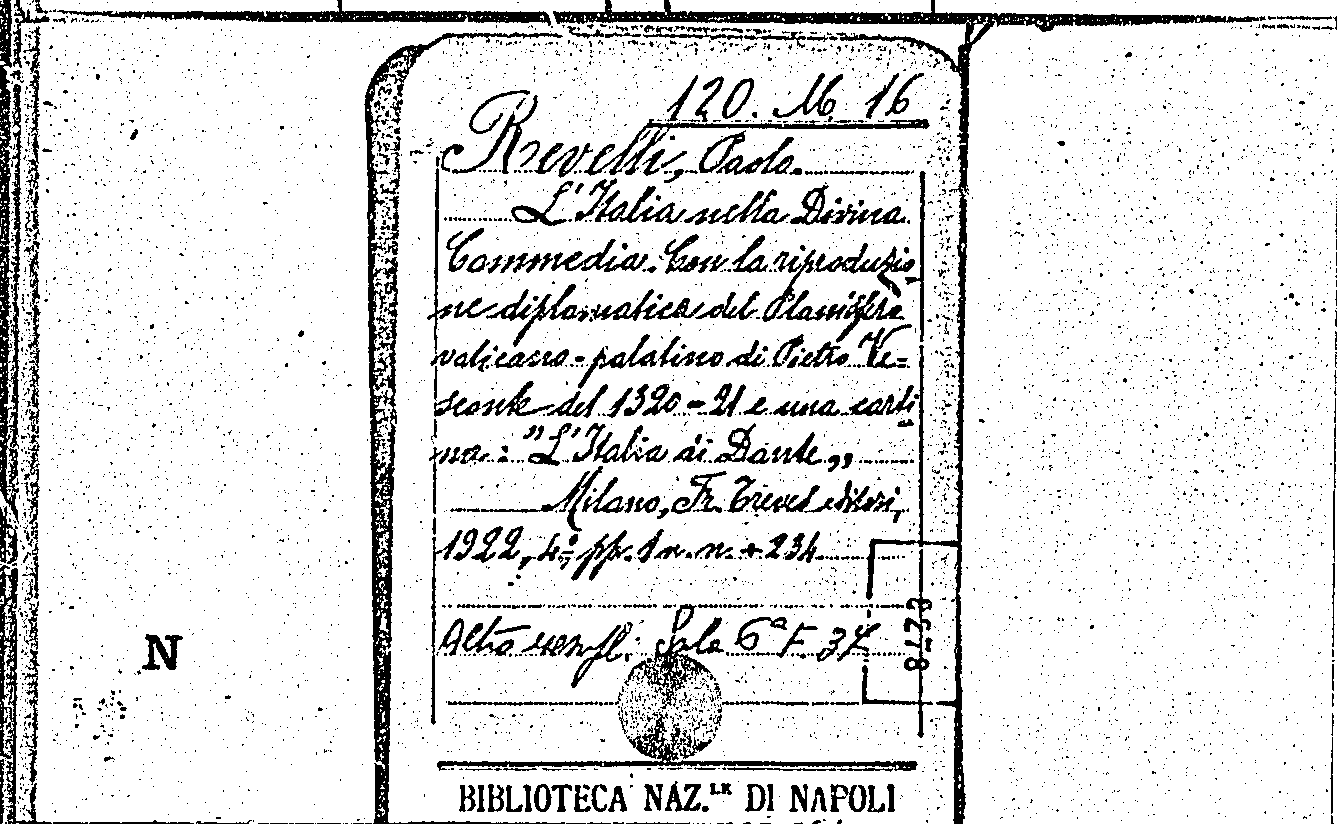 120. M. 16
Revelli, Paolo.
L'Italia nella Divina
Commedia. Con la riproduzio
ne diplomatica del Planisfero
vaticano-palatino di Pietro Ve=
sconte del 1320-21 e una carti
na: "L'Italia di Dante„
Milano, Fr. Treves editori,
1922, 4º, pp. 1 n. n. + 234
Altro esempl: Sala 6ª F. 37
8-133
N
BIBLIOTECA NAZ.LE DI NAPOLI